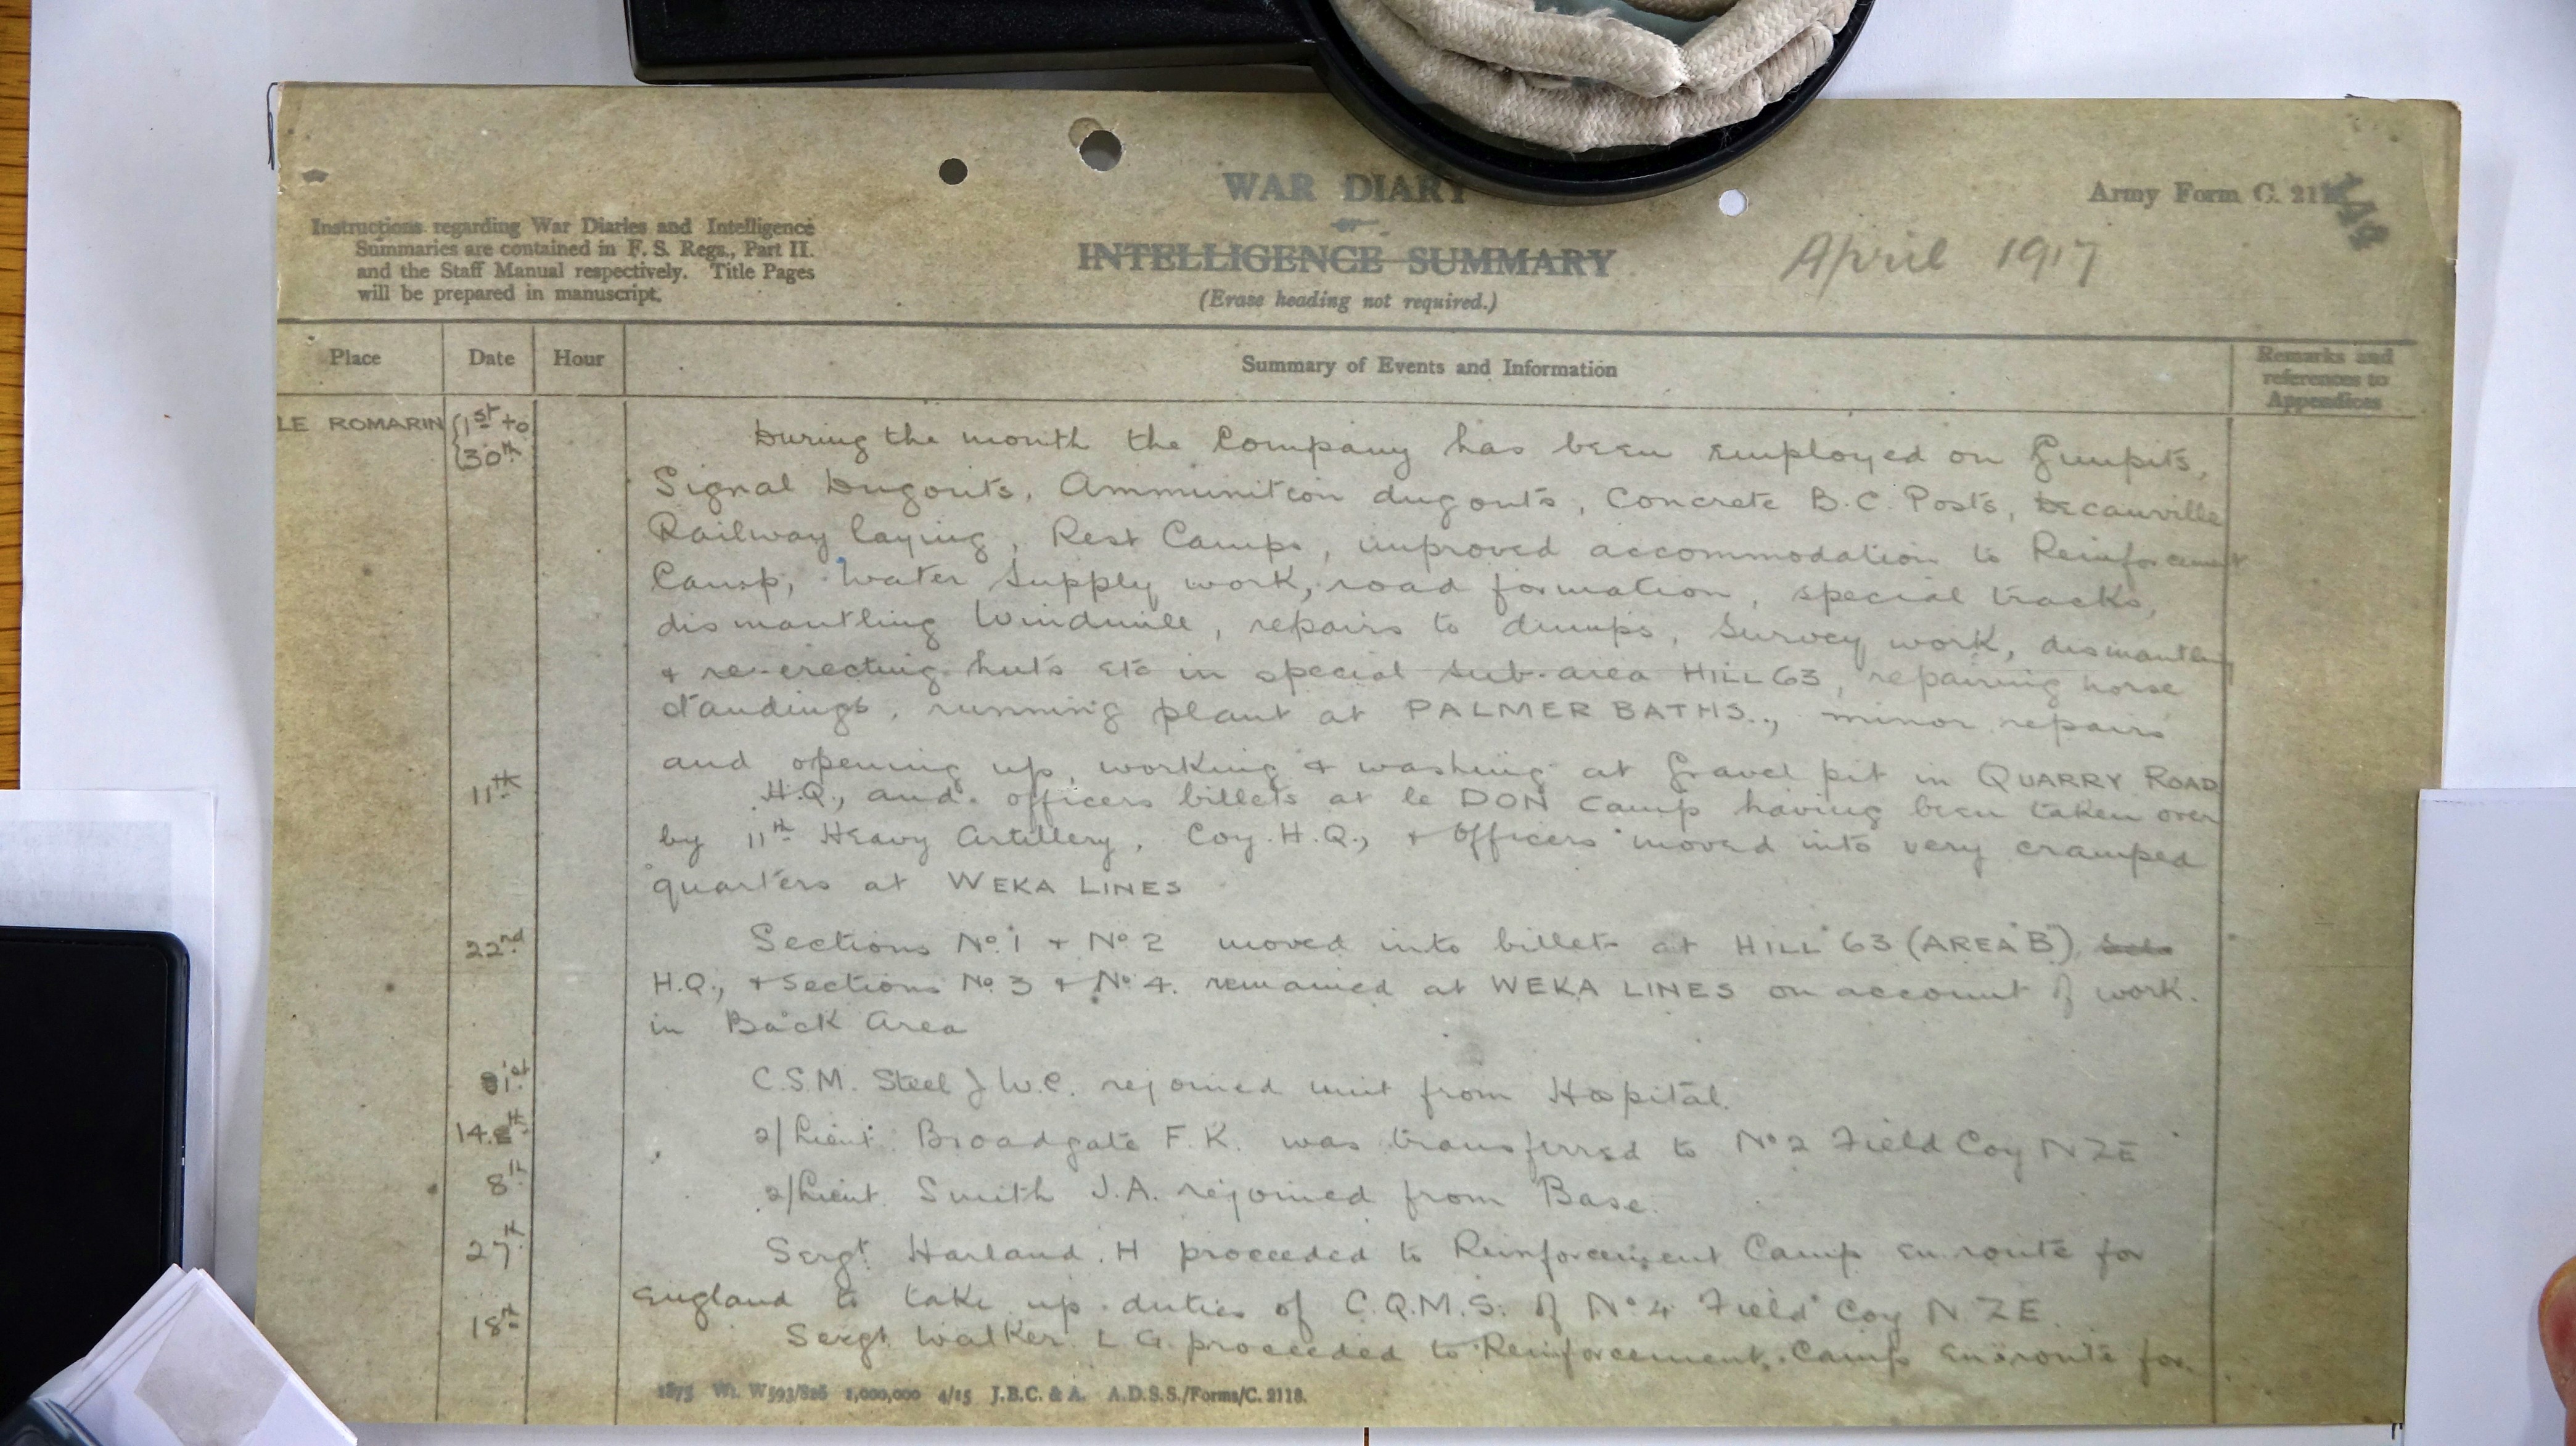 WAR DIARY
or
INTELLIGENCE SUMMARY
(Erase heading not required.)
Army Form C. 211
April 1917
Instructions regarding War Diaries and Intelligence
Summaries are contained in F. S. Regs., Part II.
and the Staff Manual respectively. Title Pages
will be prepared in manuscript.
Place Date Hour Summary of Events and Information Remarks and
references to
Appendices
LE ROMARIN 1st to
30th
During the month the Company has been employed on Gunpits,
Signal Dugouts, Ammunition dugouts, Concrete B.C. Posts, Decauville
Railway laying, Rest Camps, improved accommodation to Reinforcement
Camp, Water Supply work, road formation, special tracks,
dismantling Windmill, repairs to dumps, Survey work, dismantling
& re-erecting huts etc in special sub-area HILL 63, repairing horse
standings, running plant at PALMER BATHS., minor repairs
and opening up, working & washing at Gravel pit in QUARRY ROAD
11th H.Q., and officers billets at le DON Camp having been taken over
by 11th Heavy Artillery, Coy. H.Q., & Officers moved into very cramped
quarters at WEKA LINES
22nd Sections No. 1 & No 2 moved into billets at HILL 63 (AREA B)
H.Q., & Sections No. 3 & No. 4. remained at WEKA LINES on account of work.
in Back Area
1st C.S.M. Steel J.W.C. rejoined unit from Hospital.
14th 2/Lieut. Broadgate F.K. was transferred to No 2 Field Coy NZE
8th 2/Lieut. Smith J.A. rejoined from Base.
27th Sergt. Harland. H proceeded to Reinforcement Camp en route for
England to take up duties of C.Q.M.S. of No. 4 Field Coy N.Z.E.
18th Sergt Walker L G. proceeded to Reinforcement Camp en route for
1875 Wt. W593/826 1,000,000 4/15 J.B.C. & A. A.D.S.S./Forms/C. 2118.